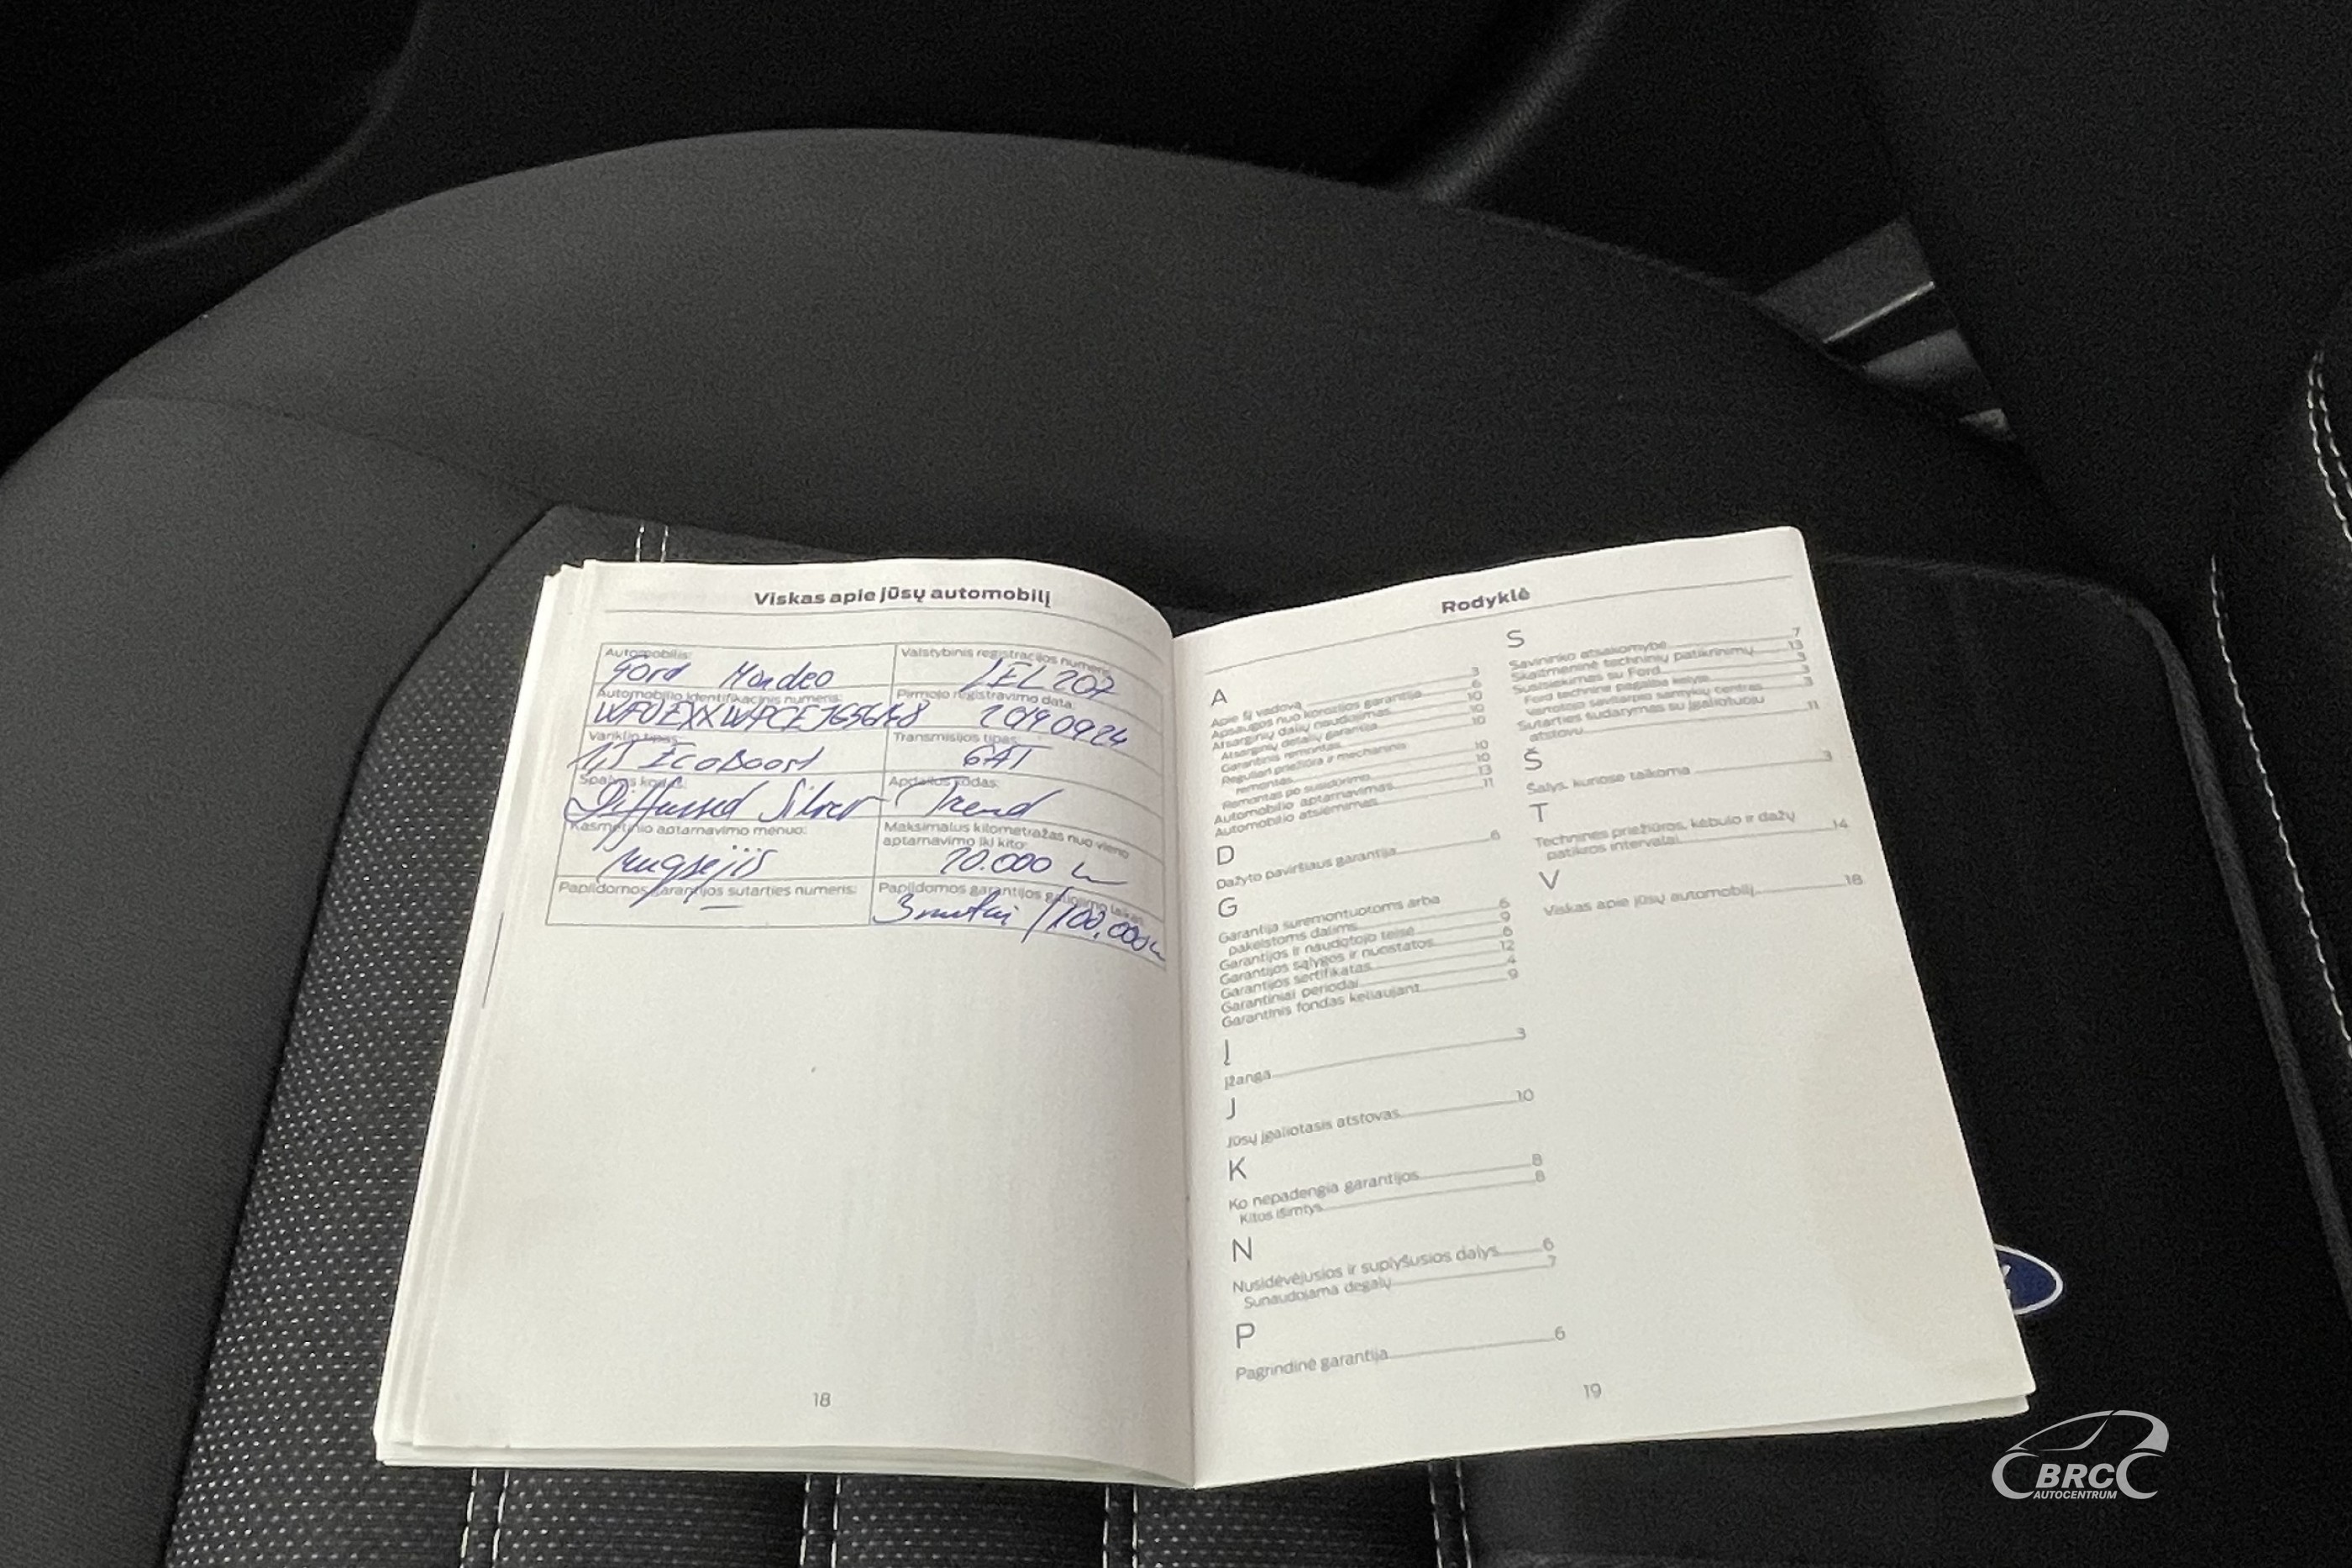 Viskas apie jūsų automobilį
Automobilis:
Ford Mondeo
Valstybinis registracijos numeris:
LEL 207
Automobilio identifikacinis numeris:
Pirmojo registravimo data:
2019 09 24
Variklio tipas:
1,5 EcoBoost
Transmisijos tipas:
6AT
Spalvos kodas:
Diffused Silver
Apdailos kodas:
Trend
Kasmetinio aptarnavimo mėnuo:
Rugsėjis
Maksimalus kilometražas nuo vieno
aptarnavimo iki kito:
20.000
Papildomos garantijos sutarties numeris:
Papildomos garantijos galiojimo laikas:
3 metai / 100.000
18
Rodyklė
A
Apie šį vadovą 3
Apsaugos nuo korozijos garantija 6
Atsarginių dalių naudojimas 10
Atsarginių detalių garantija 10
Garantinis remontas 10
Reguliari priežiūra ir mechaninis
remontas 10
Remontas po susidūrimo 10
Automobilio aptarnavimas 13
Automobilio atsiėmimas 11
D
Dažyto paviršiaus garantija 6
G
Garantija suremontuotoms arba
pakeistoms dalims 6
Garantijos ir naudotojo teisė 9
Garantijos sąlygos ir nuostatos 6
Garantijos sertifikatas 12
Garantiniai periodai 4
Garantinis fondas keliaujant 9
Į
Įžanga 3
J
Jūsų įgaliotasis atstovas 10
K
Ko nepadengia garantijos 8
Kitos išimtys 8
N
Nusidėvėjusios ir suplyšusios dalys 6
Sunaudojama degalų 7
P
Pagrindinė garantija 6
S
Savininko atsakomybė 7
Skaitmeninė techninių patikrinimų 13
Susisiekimas su Ford 3
Ford techninė pagalba kelyje 3
Vartotojo savitarpio santykių centras 3
Sutarties sudarymas su įgaliotuoju
atstovu 11
Š
Šalys, kuriose taikoma 3
T
Techninės priežiūros, kėbulo ir dažų
patikros intervalai 14
V
Viskas apie jūsų automobilį 18
19
BRC
AUTOCENTRUM